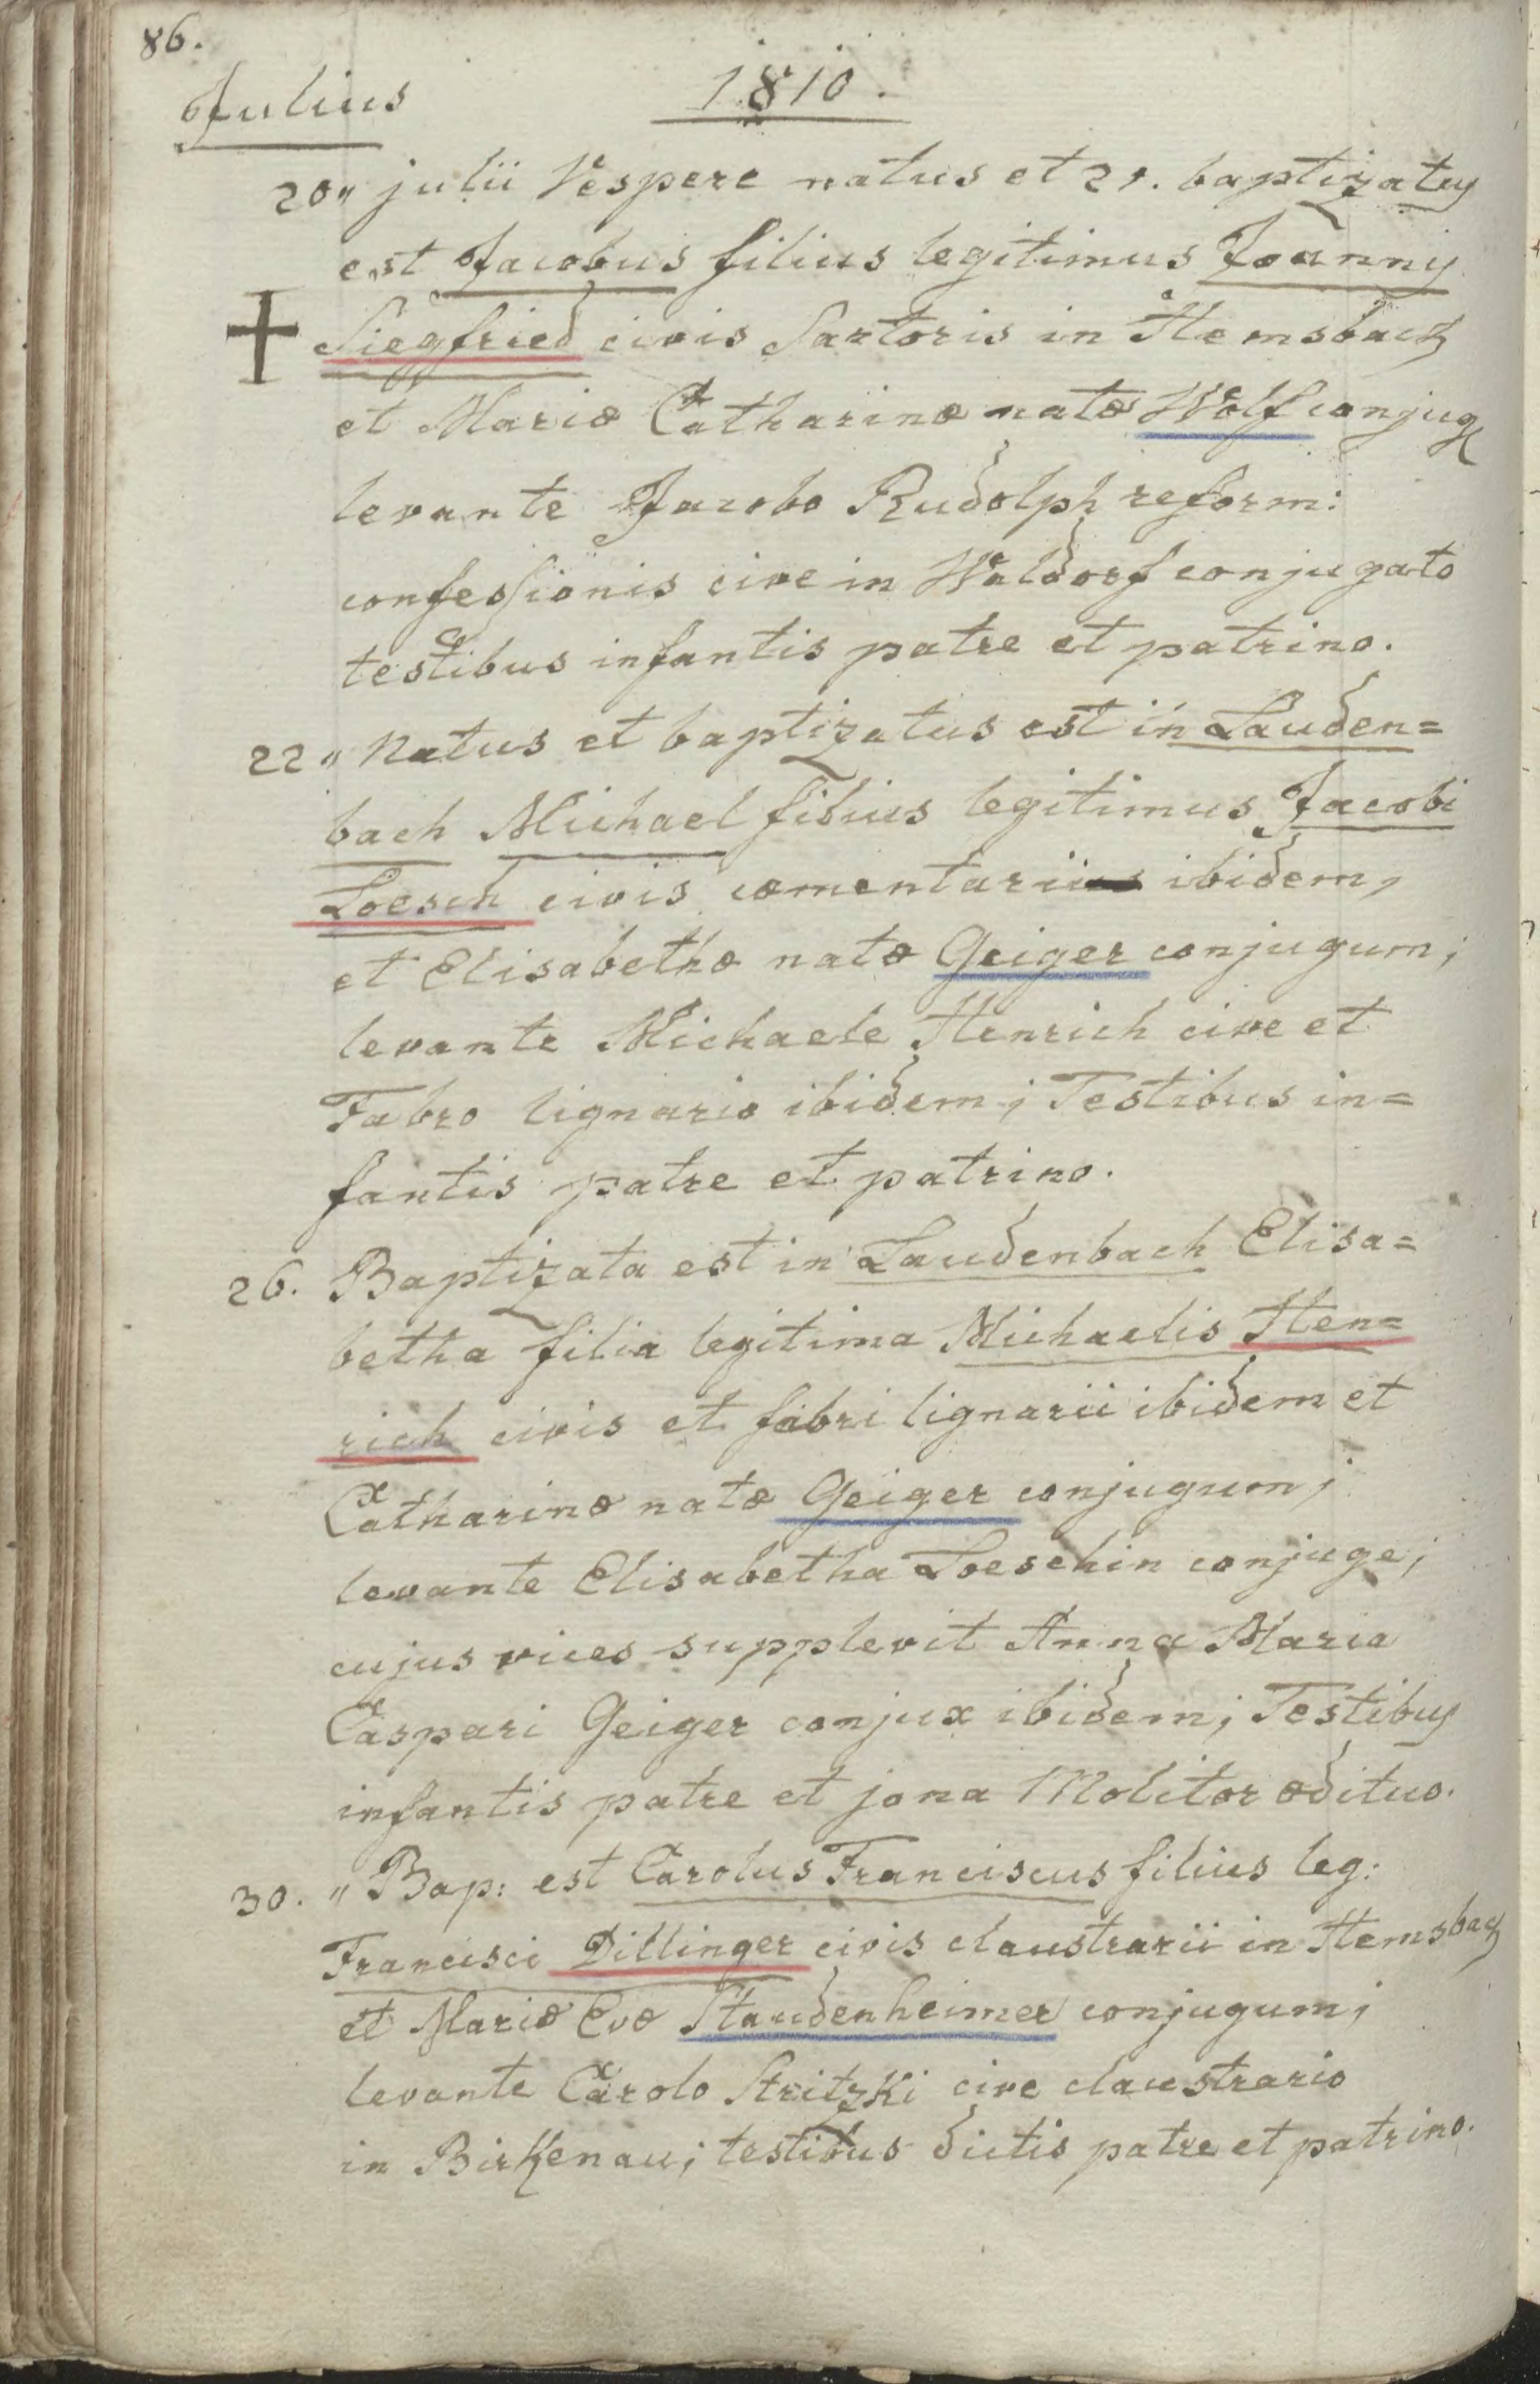 86.
Julius
1810.
20 „ julii Vespere natus et 21. baptizatus
est Jacobus filius legitimus Joannis
Siegfried civis Sartoris in Hemsbach
et Mariæ Catharinæ natæ Wolf conjug
levante Jacobo Rudolph reform:
confessionis cive in Waldorf conjugato
testibus infantis patre et patrino.
22 „ Natus et baptizatus est in Lauden=
bach Michael filius legitimus Jacobi
Loesch civis cæmentarii ibidem,
et Elisabethæ natæ Geiger conjugum;
levante Michaele Henrich cive et
Fabro lignario ibidem; Testibus in=
fantis patre et patrino.
26. Baptizata est in Laudenbach Elisa=
betha filia legitima Michaelis Hen=
rich civis et fabri lignarii ibidem et
Catharinæ natæ Geiger conjugum;
levante Elisabetha Loeschin conjuge;
cujus vices supplevit Anna Maria
Caspari Geiger conjux ibidem; Testibus
infantis patre et jona Molitor ædituo.
30. „ Bap: est Carolus Franciscus filius leg:
Francisci Dillinger civis claustrarii in Hemsbach
et Mariæ Evæ Staudenheimer conjugum;
levante Carolo Stritzki cive claustrario
in Birkenau; testibus dictis patre et patrino.